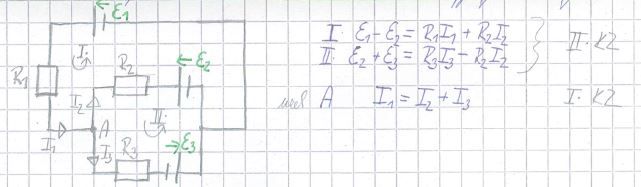 ε1
I.
R1
R2
ε2
I2
II.
A
I1
I3
R3
ε3
I. ε1 - ε2 = R1I1 + R2I2
II. ε2 + ε3 = R3I3 - R2I2
II. KZ
uzel A I1 = I2 + I3
I. KZ